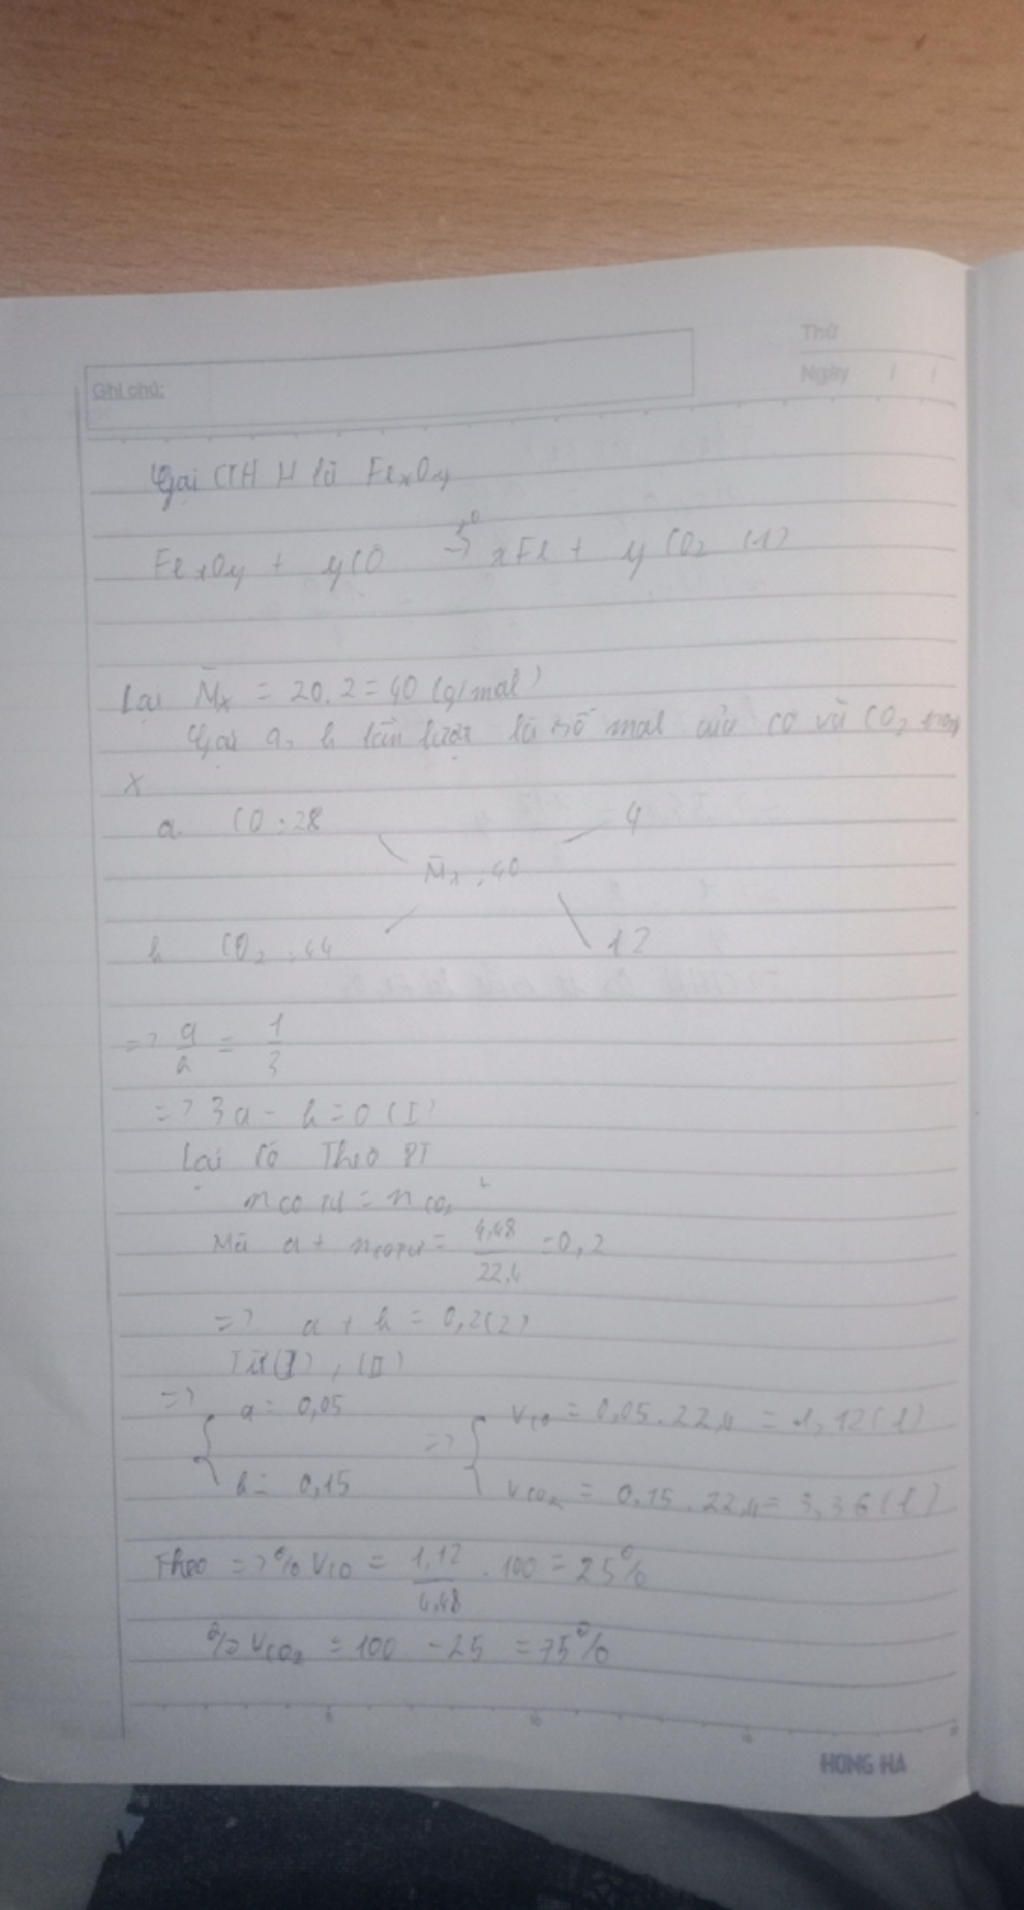 Thứ
Ghi chú:
Ngày / /
Gọi CTHH là FexOy
FexOy + yCO →t⁰ xFe + yCO₂ (1)
Lại M̄x = 20.2 = 40 (g/mol)
Gọi a, b lần lượt là số mol của CO và CO₂ trong
X
a CO : 28 4
M̄x : 40
b CO₂ : 44 12
=> a/b = 1/3
=> 3a - b = 0 (I)
Lại có Theo PT
nCO pứ = nCO₂
Mà a + nCO pứ = 4,48/22,4 = 0,2
=> a + b = 0,2 (2)
Từ (I), (II)
=> { a = 0,05 => { VCO = 0,05.22,4 = 1,12 (l)
b = 0,15 VCO₂ = 0,15.22,4 = 3,36 (l)
Theo => % VCO = 1,12/4,48 . 100 = 25%
% VCO₂ = 100 - 25 = 75%
5 10 15 20
HONG HA